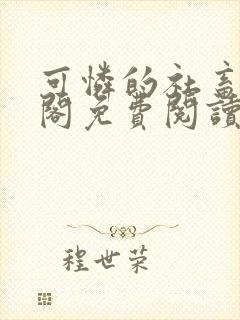 可憐的社畜
閣免費閱讀
程世荣